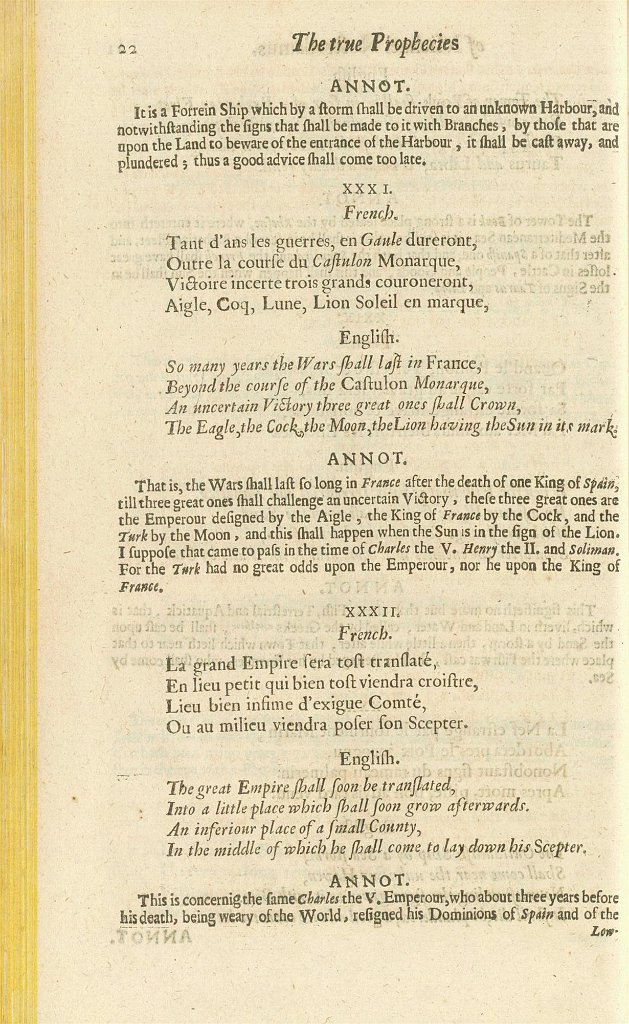 22 The true Prophecies
ANNOT.
It is a Forrein Ship which by a ſtorm ſhall be driven to an unknown Harbour, and
notwithſtanding the ſigns that ſhall be made to it with Branches, by thoſe that are
upon the Land to beware of the entrance of the Harbour, it ſhall be caſt away, and
plundered; thus a good advice ſhall come too late.
XXXI.
French.
Tant d'ans les guerres, en Gaule dureront,
Outre la courſe du Caſtulon Monarque,
Victoire incerte trois grands couroneront,
Aigle, Coq, Lune, Lion Soleil en marque,
Engliſh.
So many years the Wars ſhall laſt in France,
Beyond the courſe of the Caſtulon Monarque,
An uncertain Victory three great ones ſhall Crown,
The Eagle, the Cock, the Moon, the Lion having the Sun in its mark.
ANNOT.
That is, the Wars ſhall laſt ſo long in France after the death of one King of Spain,
till three great ones ſhall challenge an uncertain Victory, theſe three great ones are
the Emperour deſigned by the Aigle, the King of France by the Cock, and the
Turk by the Moon, and this ſhall happen when the Sun is in the ſign of the Lion.
I ſuppoſe that came to paſs in the time of Charles the V. Henry the II. and Soliman.
For the Turk had no great odds upon the Emperour, nor he upon the King of
France.
XXXII.
French.
La grand Empire ſera toſt tranſlaté,
En lieu petit qui bien toſt viendra croiſtre,
Lieu bien inſime d'exigue Comté,
Ou au milieu viendra poſer ſon Scepter.
Engliſh.
The great Empire ſhall ſoon be tranſlated,
Into a little place which ſhall ſoon grow afterwards.
An inferiour place of a ſmall County,
In the middle of which he ſhall come to lay down his Scepter.
ANNOT.
This is concernig the ſame Charles the V. Emperour, who about three years before
his death, being weary of the World, reſigned his Dominions of Spain and of the
Low-